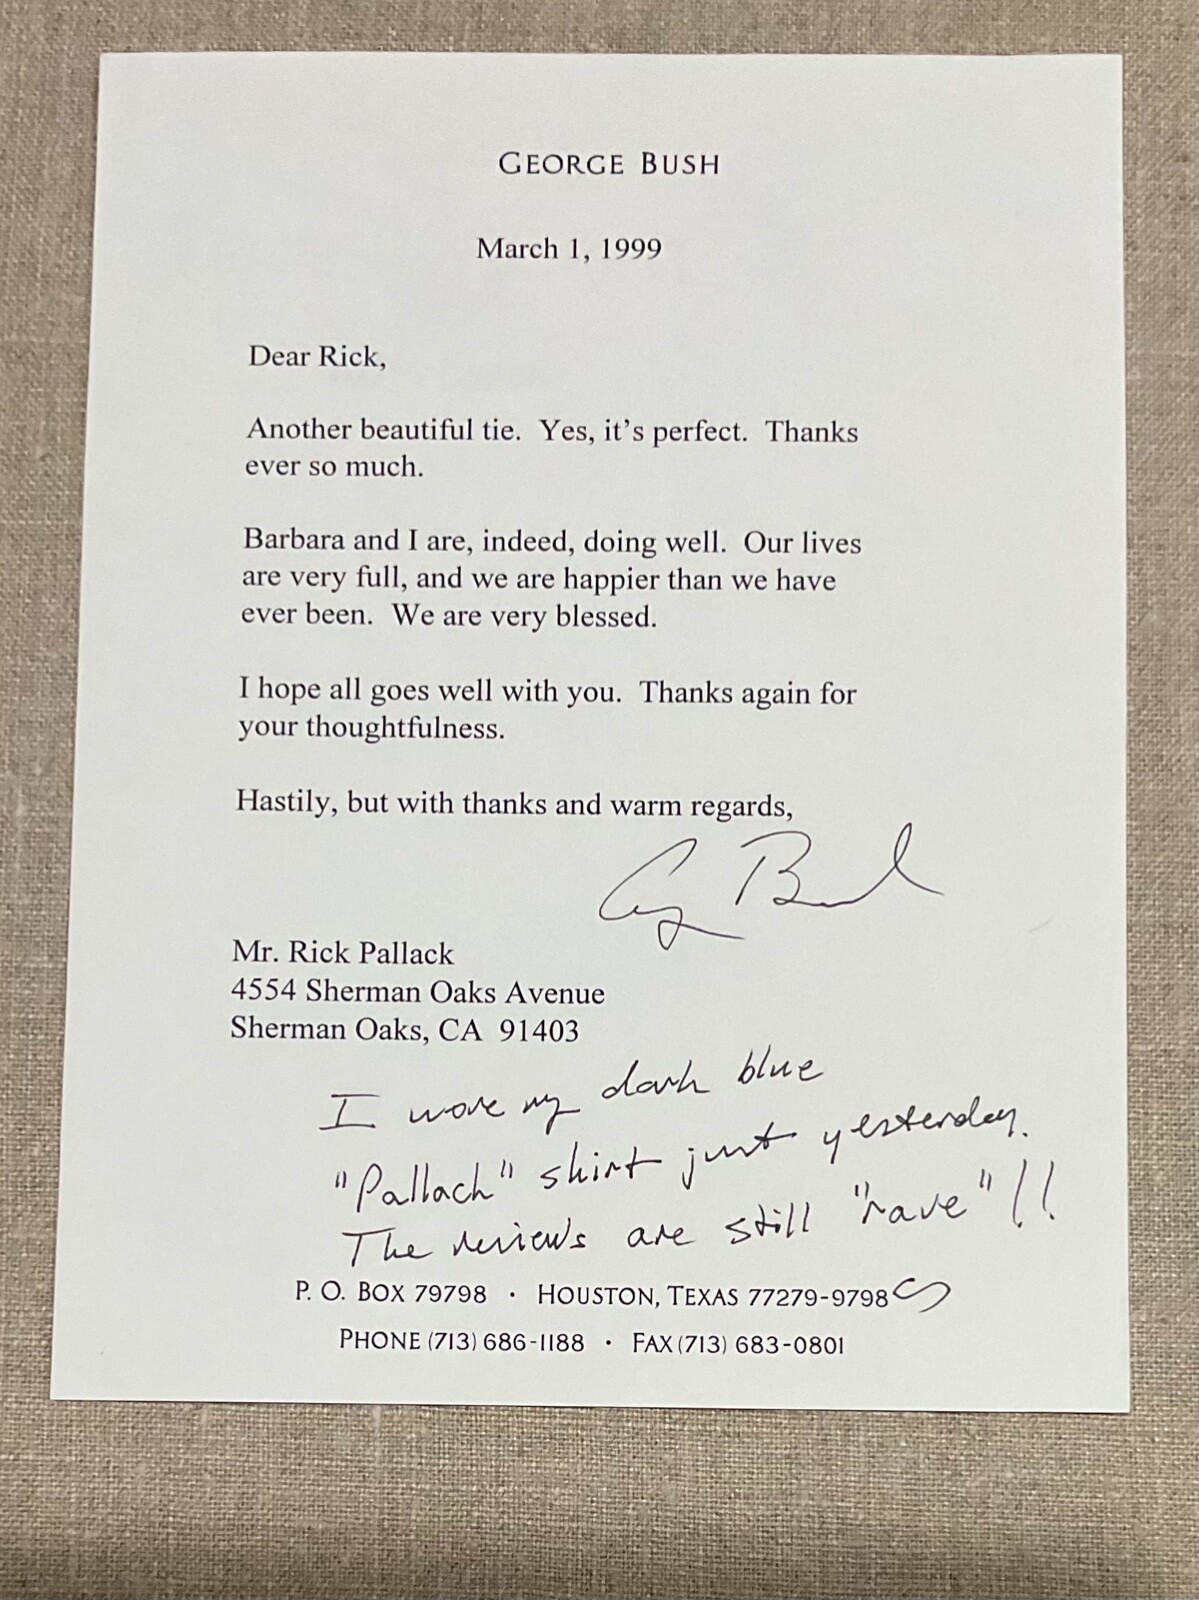 GEORGE BUSH
March 1, 1999
Dear Rick,
Another beautiful tie.  Yes, it's perfect.  Thanks
ever so much.
Barbara and I are, indeed, doing well.  Our lives
are very full, and we are happier than we have
ever been.  We are very blessed.
I hope all goes well with you.  Thanks again for
your thoughtfulness.
Hastily, but with thanks and warm regards,
G Bush
Mr. Rick Pallack
4554 Sherman Oaks Avenue
Sherman Oaks, CA  91403
I wore my dark blue
"Pallack" shirt just yesterday.
The reviews are still "rave"!!
P. O. BOX 79798 · HOUSTON, TEXAS 77279-9798
PHONE (713) 686-1188 · FAX (713) 683-0801